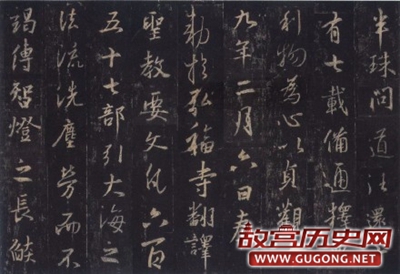 半珠問道往還
有七載備通釋
利物為心以貞觀
九年二月六日奉
勅於弘福寺翻譯
聖教要文凡六百
五十七部引大海之
法流洗塵勞而不
竭傳智燈之長燄
故宫历史网
WWW.GUGONG.NET